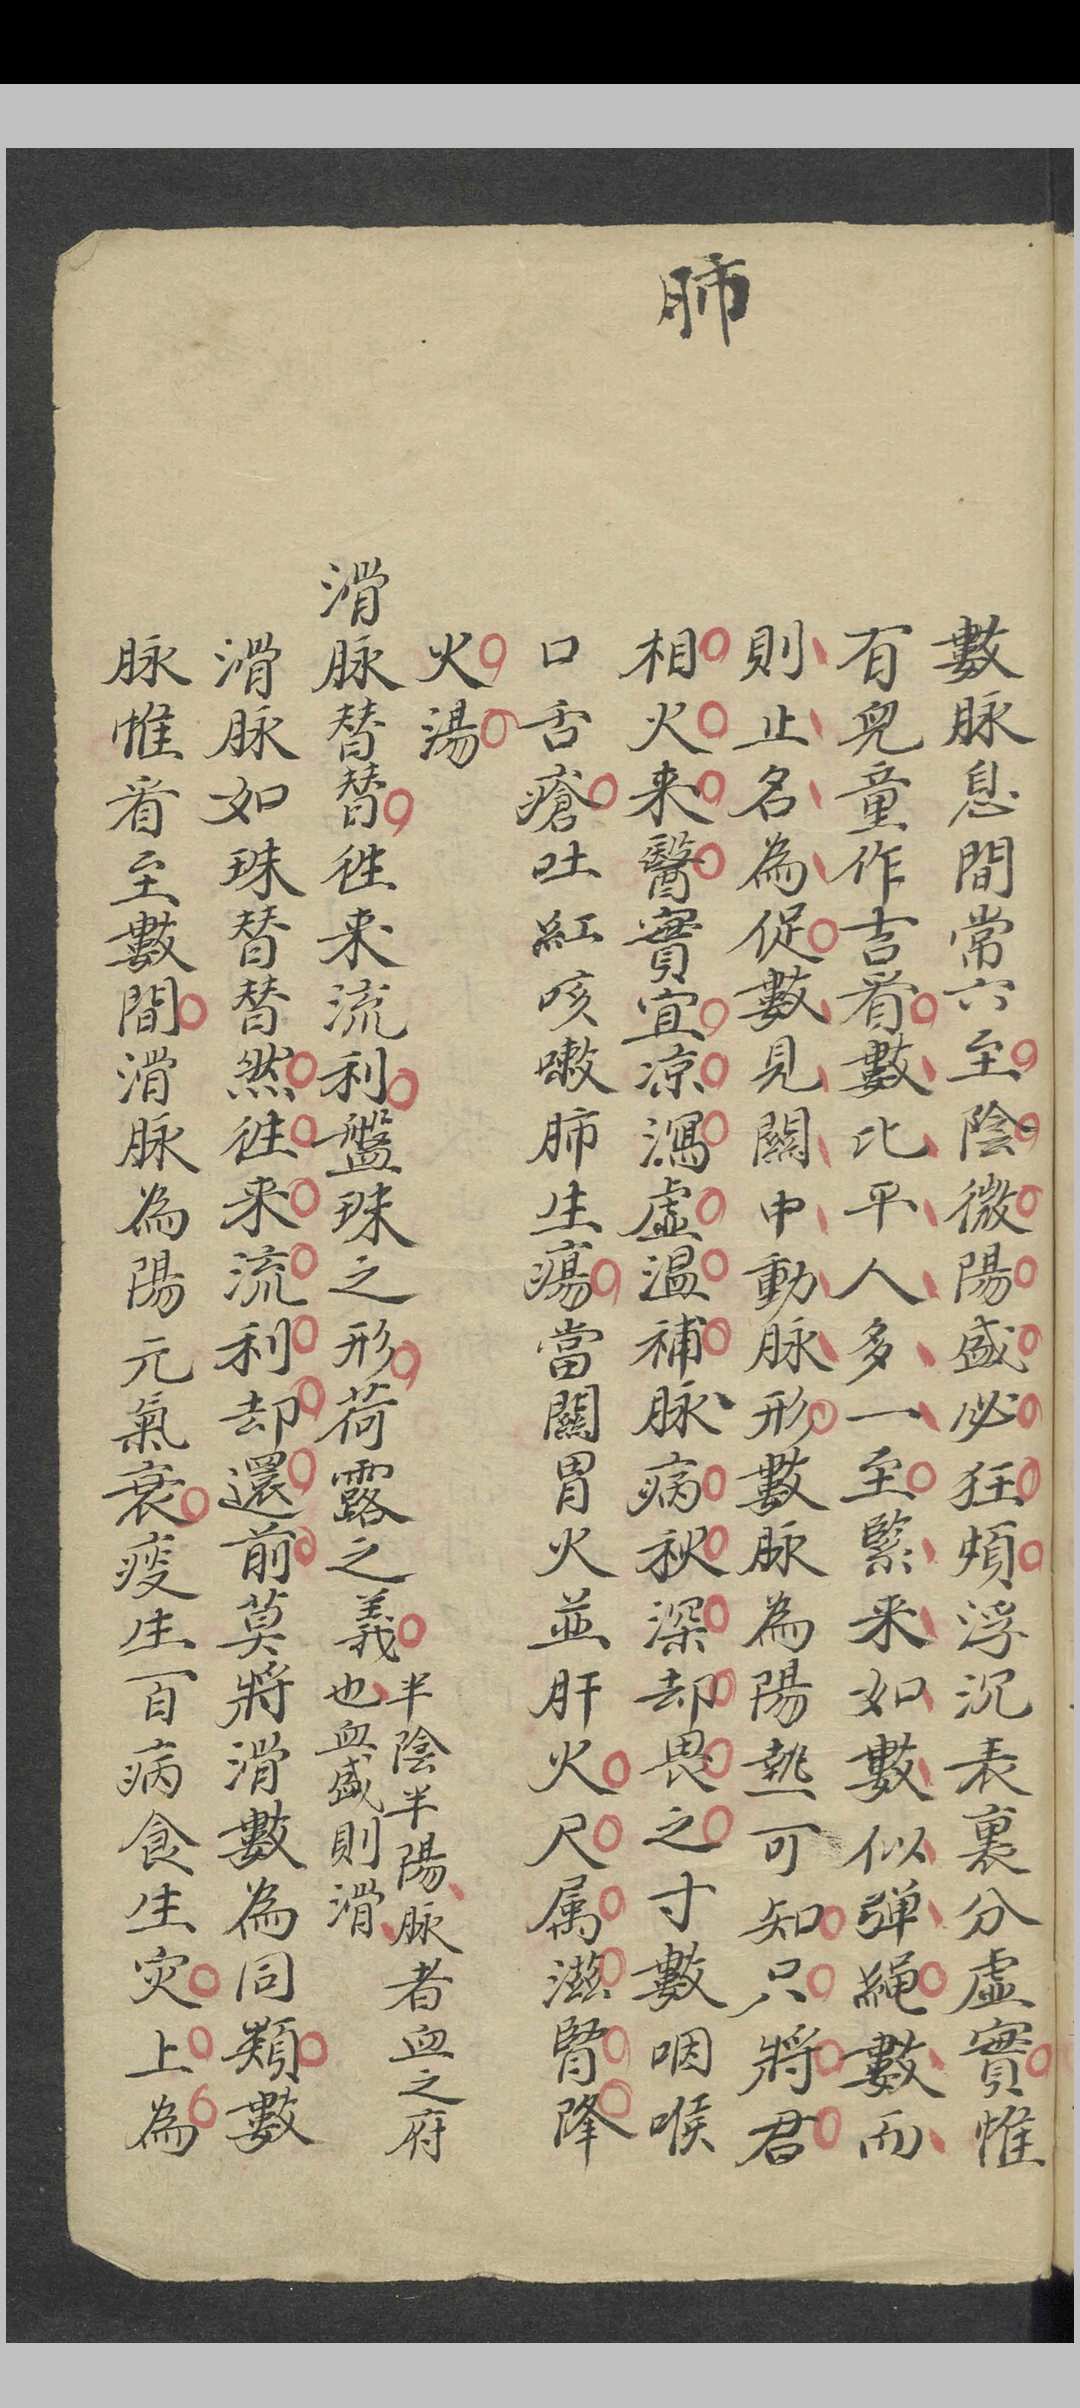 肺
數脉息間常六至陰微陽盛必狂煩浮沉表裏分虛實惟
有児童作吉看數比平人多一至緊来如數似弹繩數而
則止名為促數見關中動脉形數脉為陽熱可知只將君
相火来醫實宜凉瀉虛温補脉病秋深却畏之寸數咽喉
口舌瘡吐紅咳嗽肺生瘍當關胃火並肝火尺属滋腎降
火湯
滑脉替替徃来流利盤珠之形荷露之義也血盛則滑
半陰半陽脉者血之府
滑脉如珠替替然徃来流利却還前莫將滑數為同類數
脉惟看至數間滑脉為陽元氣衰痰生百病食生灾上為